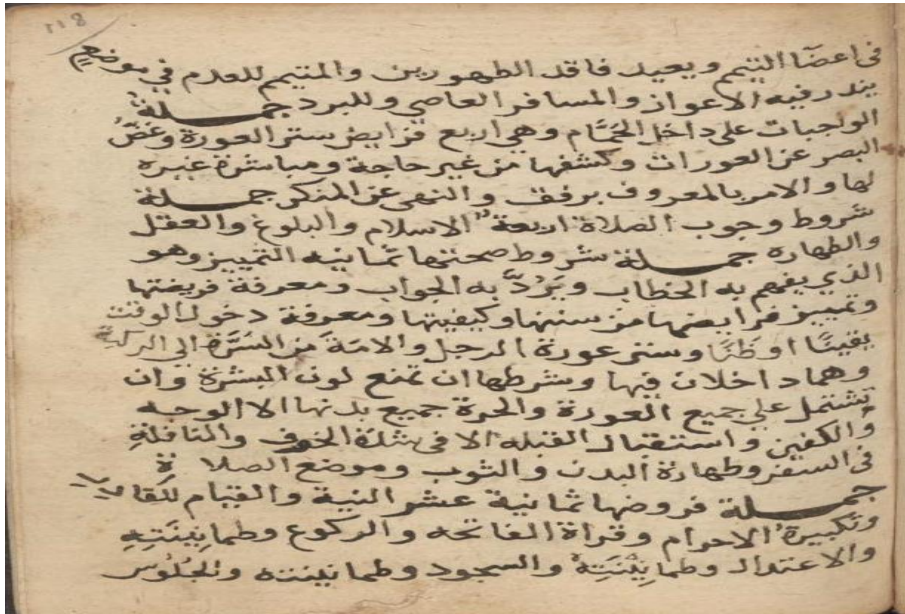 ١١٨
في اعضآ التيمم ويعيد فاقد الطهورين والمتيمم للعدم في موضعٍ
يندر فيه الاعواز والمسافر العاصي وللبرد جملة
الواجبات على داخل الحمَّام وهي اربع فرايض ستر العورة وغضّ
البصر عن العورات وكشفها من غير حاجة ومباشرة غيره
لها والامر بالمعروف برفق والنهي عن المنكر جملة
شروط وجوب الصلاة اربعة الاسلام والبلوغ والعقل
والطهارة جملة شروط صحتها ثمانيه التمييز وهو
الذي يفهم به الخطاب ويَرُدّ به الجواب ومعرفة فريضتها
وتمييز فرايضها من سننها وكيفيتها ومعرفة دخول الوقت
يقينًا او ظنًا وستر عورة الرجل والامة من السُرَّة الي الركبة
وهما داخلان فيها وشرطها ان تمنع لون البشرة وان
تشتمل علي جميع العورة والحرة جميع بدنها الا الوجه
والكفين واستقبال القبله الا في شدة الخوف والنافلةِ
في السفر وطهارة البدن والثوب وموضع الصلاة
جملة فروضها ثمانية عشر النية والقيام للقادر
وتكبيرةُ الاحرام وقراة الفاتحه والركوع وطمانِينَتِهِ
والاعتدال وطمانِينَتِهُ والسجود وطمانينته والجُلُوس